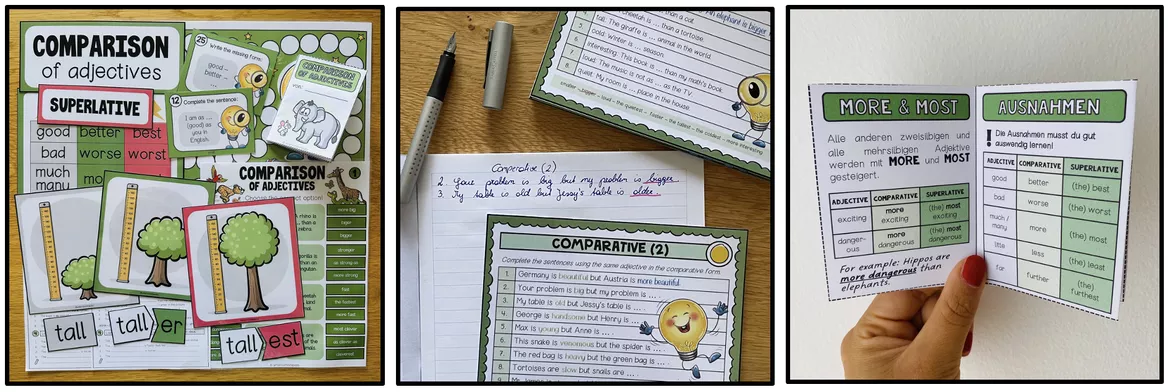 COMPARISON
of adjectives
SUPERLATIVE
good better best
bad worse worst
much
many
25
Write the missing form:
good –
better –
12
Complete the sentence:
I am as ...
(good) as
you in
English.
COMPARISON
OF ADJECTIVES
von:
COMPARISON
OF ADJECTIVES
more big
bigger
stronger
as strong as
more strong
fast
the fastest
more fast
tall
tall er
tall est
than a cat.
... than a tortoise.
tall: The giraffe is ... animal in the world.
cold: Winter is ... season.
interesting: This book is ... than my math's book
loud: The music is not as ... as the TV.
quiet: My room is ... place in the house.
Comperative (2)
2. Your problem is big but my problem is bigger.
3. My table is old but Jessy's table is older.
COMPARATIVE (2)
Complete the sentences using the same adjective in the comparative form
1. Germany is beautiful but Austria is more beautiful.
2. Your problem is big but my problem is ... .
3. My table is old but Jessy's table is ... .
4. George is handsome but Henry is ... .
5. Max is young but Anne is ... .
6. This snake is venomous but the spider is ... .
7. The red bag is heavy but the green bag is ... .
8. Tortoises are slow but snails are ... .
MORE & MOST
Alle anderen zweisilbigen und
alle mehrsilbigen Adjektive
werden mit MORE und MOST
gesteigert.
ADJECTIVE COMPARATIVE SUPERLATIVE
exciting more exciting (the) most exciting
danger-ous more dangerous (the) most dangerous
For example: Hippos are
more dangerous than
elephants.
AUSNAHMEN
! Die Ausnahmen musst du gut
auswendig lernen!
ADJECTIVE COMPARATIVE SUPERLATIVE
good better (the) best
bad worse (the) worst
much / many more (the) most
little less (the) least
far further (the) furthest